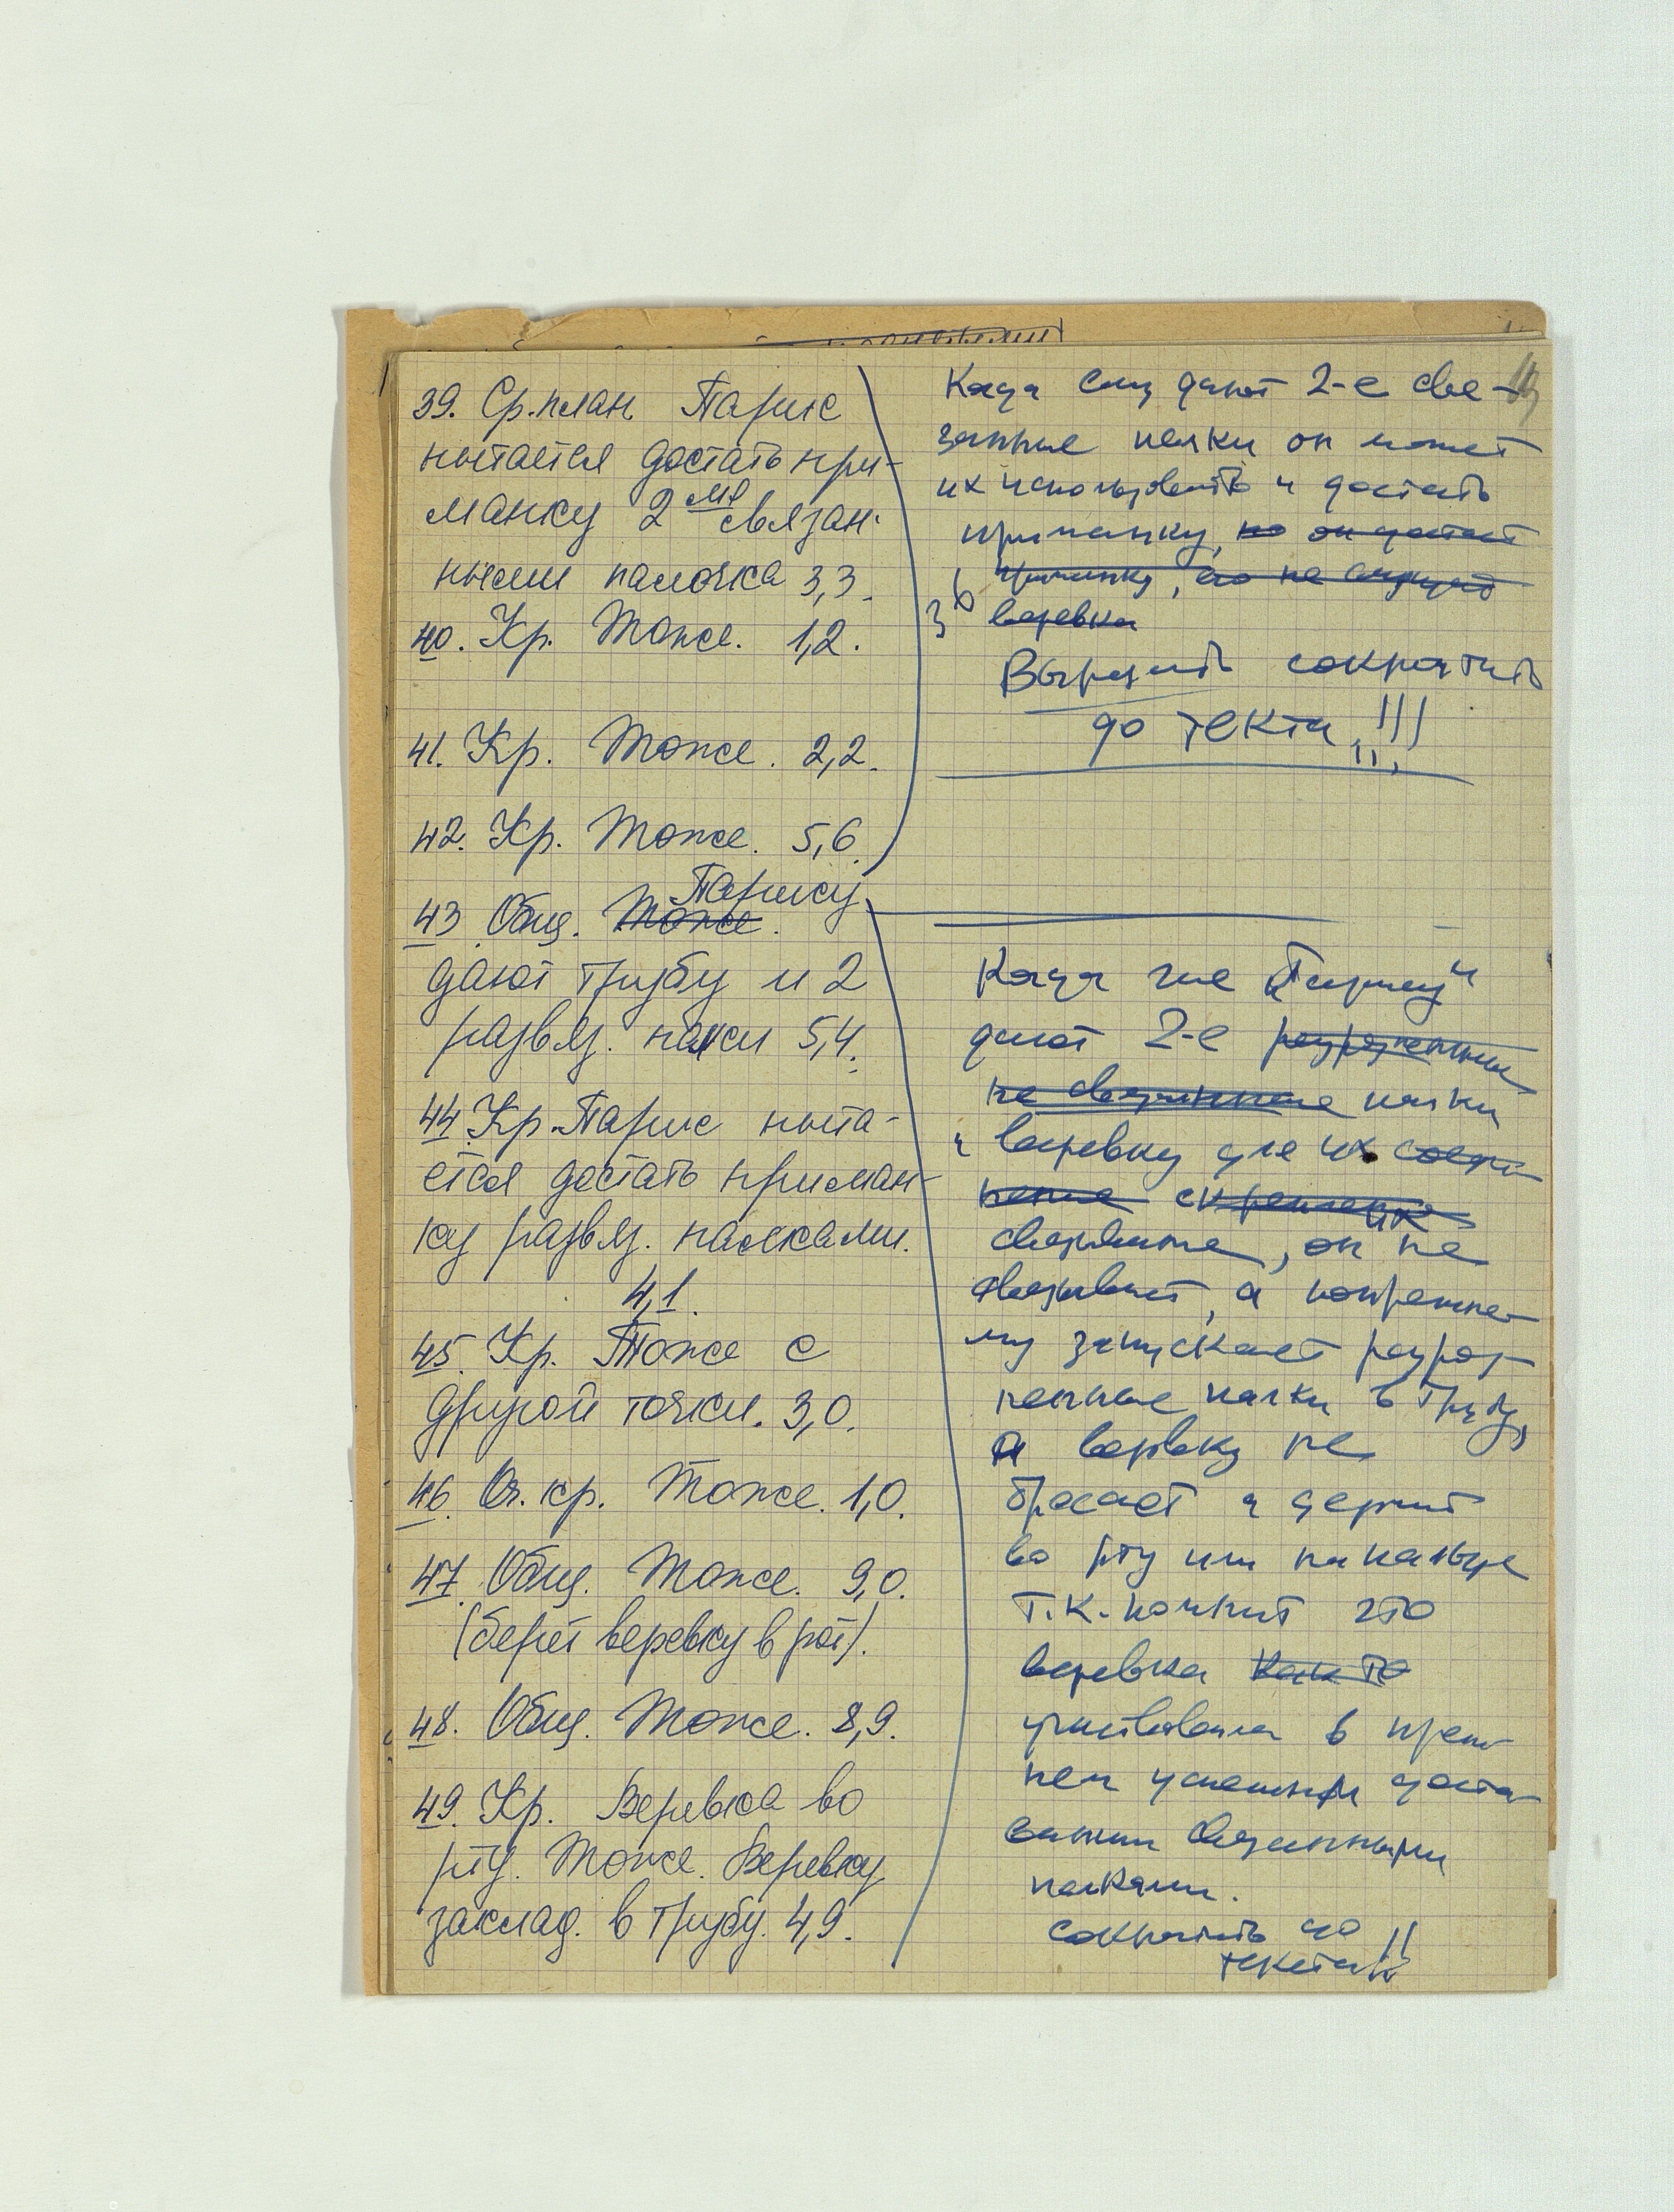 39. Ср. план. Парис
пытается достать при-
манку 2мя связан-
ными палочка 3,3.
40. Кр. Тоже. 1,2.
41. Кр. Тоже. 2,2.
42. Кр. Тоже. 5,6.
Парису
43 Общ. Тоже.
дают трубу и 2
развяз. палки 5,4.
44 Кр. Парис пыта-
ется достать приман-
ку развяз. палками.
4,1.
45. Кр. Тоже с
другой точки. 3,0.
46. Оч. кр. Тоже. 1,0.
47. Общ. Тоже. 9,0.
(берет веревку в рот).
48. Общ. Тоже. 8,9.
49. Кр. Веревка во
рту. Тоже. Веревку
заклад. в трубу. 4,9.
Когда ему дают 2-е свя-
занные палки он может
их использовать и достать
приманку, но он достает
приманку, его не
36 веревка
Вырезать сократить
до текста !!!
Когда же "Парису"
дают 2-е разрозненные
не связанные палки
и веревку для их соеди-
нения скрепления
связывания, он не
связывает, а попрежне-
му запускает разроз-
ненные палки в трубу,
а веревку не
бросает и держит
во рту или на пальце
т.к. помнит что
веревка как то
участвовала в преж-
нем успешном доста-
вании связанными
палками.
сократить до
текста !!